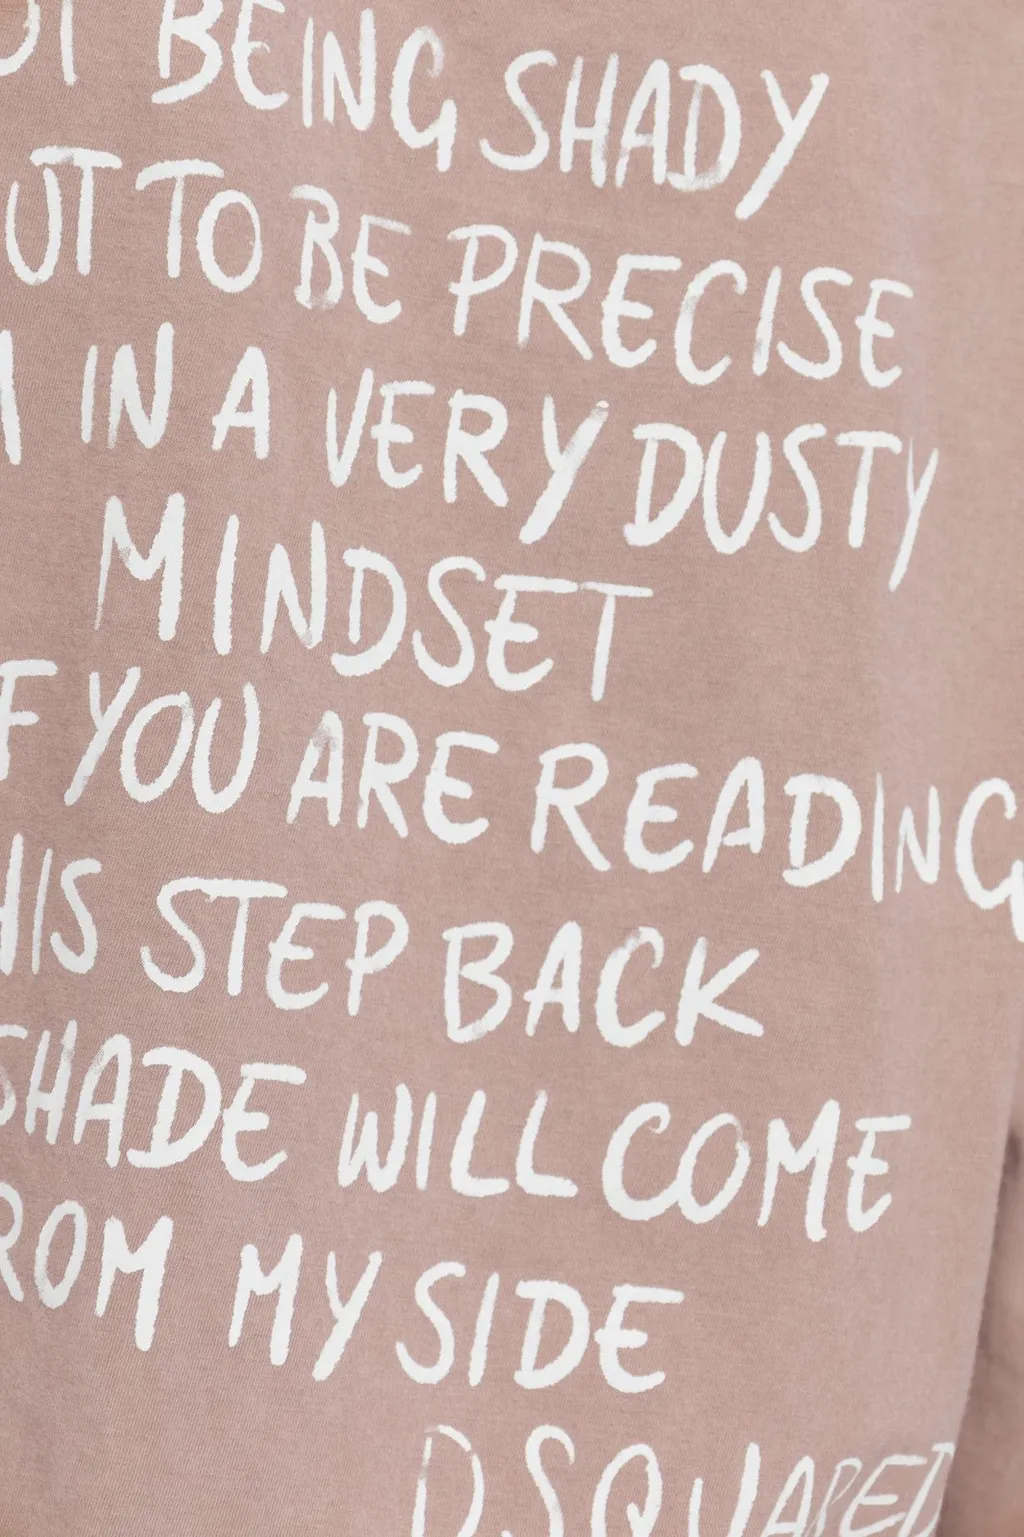 OT BEING SHADY
UT TO BE PRECISE
IN A VERY DUSTY
MINDSET
F YOU ARE READING
HIS STEP BACK
SHADE WILL COME
ROM MY SIDE
DSQUARED